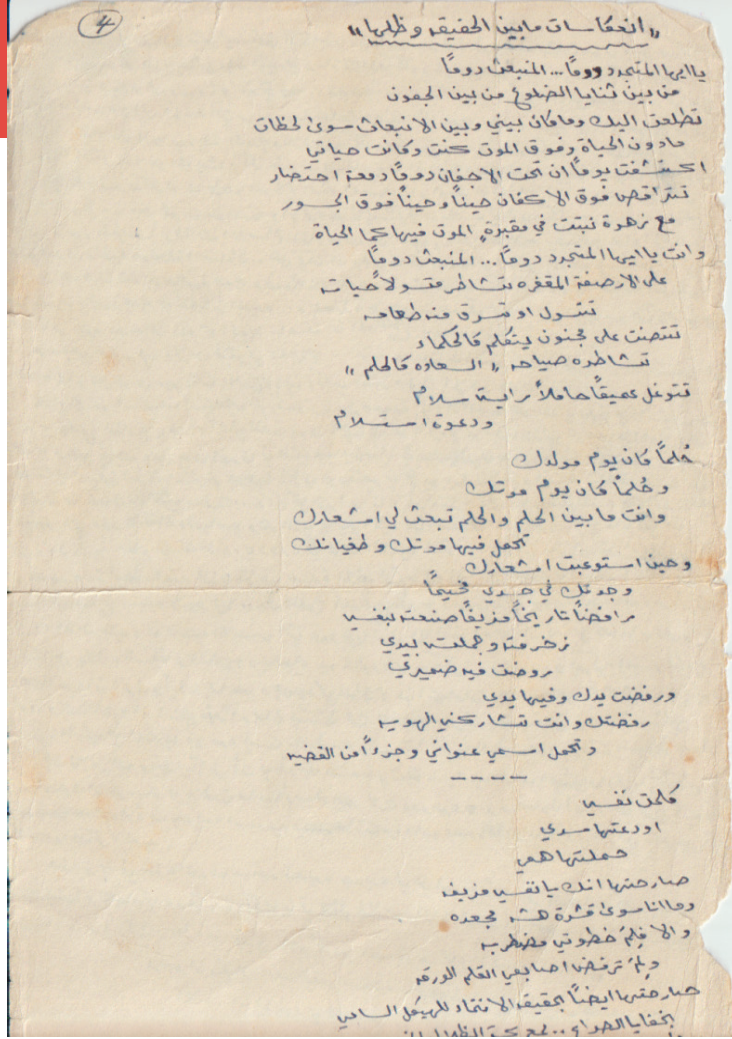 ④
" انعكاسات مابين الحقيقه وظلها "
يا ايها المتجدد دوماً... المنبعث دوماً
من بين ثنايا الضلوع من بين الجفون
تطلعت اليك وما كان بيني وبين الانبعاث سوى لحظات
مادون الحياة وفوق الموت كنت وكانت حياتي
اكتشفت يوماً ان تحت الاجفان دوماً دمعة احتضار
تتراقص فوق الاكفان حيناً وحيناً فوق الجسور
مع زهرة نبتت في مقبرةٍ الموت فيها كما الحياة
وانت يا ايها المتجدد دوماً... المنبعث دوماً
على الارصفة المقفره تشاطر متسولاً حياته
تتسول او تسرق منه طعامه
تتصنت على مجنون يتكلم كالحكماء
تشاطره صياحه " السعاده كالحلم "
تتوغل عميقاً حاملاً راية سلام
ودعوة استسلام
حُلماً كان يوم مولدك
وحُلماً كان يوم موتك
وانت ما بين الحلم والحلم تبعث لي اشعارك
تحمل فيها موتك وطغيانك
وحين استوعبت اشعارك
وجدتك في جسدي مخيماً
رافضاً تاريخاً مزيفاً صنعته بنفسي
زخرفته وجملته بيدي
روضت فيه ضميري
ورفضت يدك وفيها يدي
رفضتك وانت تشاركني الهويه
وتحمل اسمي عنواني وجزءاً من القضيه
----
كلمت نفسي
اودعتها سري
حملتها همي
صارحتها انك يا نفسي مزيفه
وما انا سوى قشرة هشه مجعده
والا فلِمَ خطوتي مضطربه
ولِمَ ترفض اصابعي القلم الورقه
صارحتها ايضاً بحقيقه الانتماء للهيكل السامي
بخفايا الصراع ..